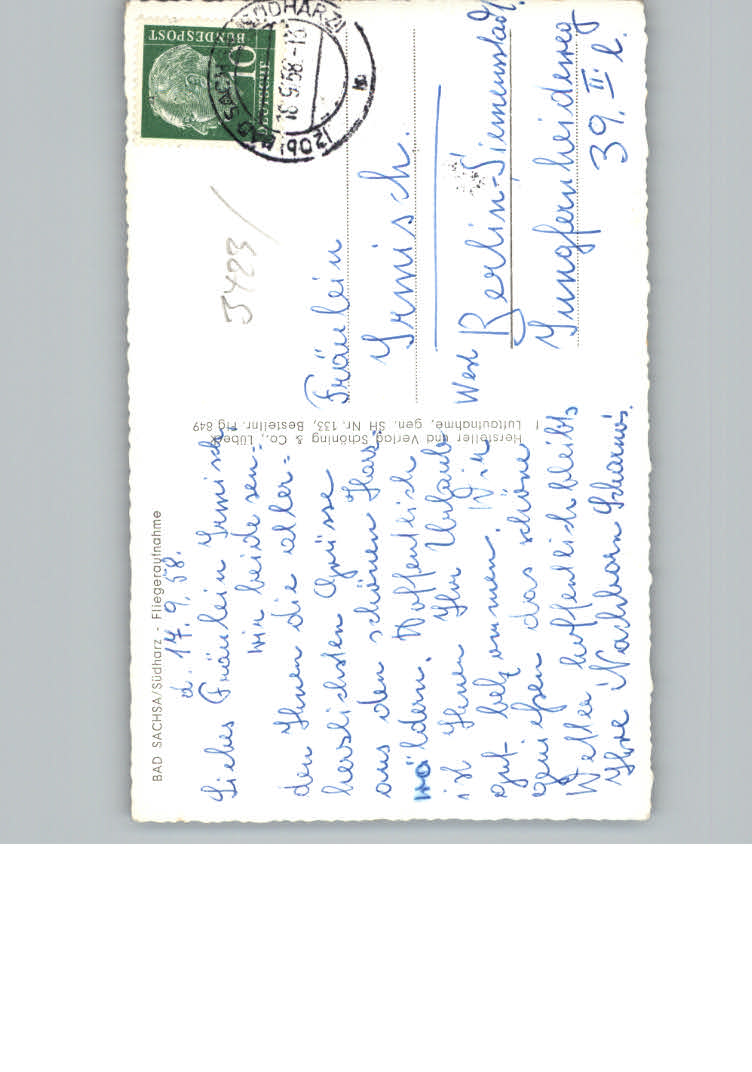 BAD SACHSA/Südharz - Fliegeraufnahme
d. 17.9.58.
Liebes Fräulein Irmisch.
Wir beide sen-
den Ihnen die aller-
herzlichsten Grüsse
aus den schönen Harz-
wäldern. Hoffentlich
ist Ihnen Ihr Urlaub
gut bekommen. Wir
genießen das schöne
Wetter hoffentlich bleibts
Ihre Nachbarn
Hersteller und Verlag Schöning & Co., Lübeck
Luftaufnahme, gen. SH Nr. 133, Bestellnr. Flg 849
DEUTSCHE
BUNDESPOST
10
(20b) BAD SACHSA (SÜDHARZ)
5423
Fräulein
Irmisch.
West Berlin-Siemensstadt
Jungfernheideweg
39. II. l.